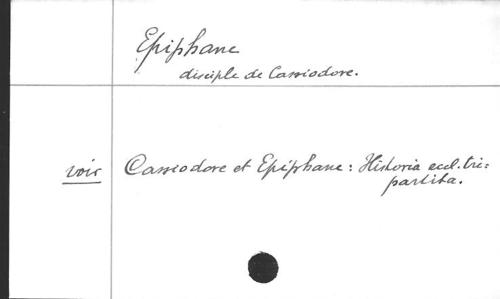 Epiphane
disciple de Cassiodore.
voir Cassiodore et Epiphane : Historia eccl. tri=
partita.